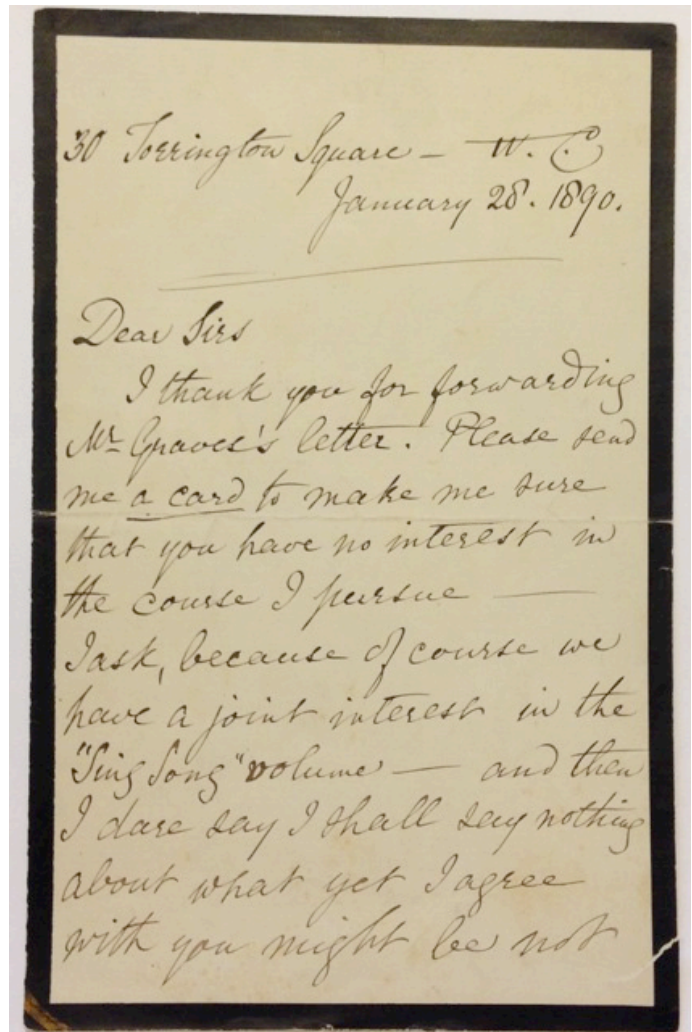 30 Torrington Square — W. C.
January 28. 1890.
Dear Sirs
I thank you for forwarding
Mr Graves's letter. Please send
me a card to make me sure
that you have no interest in
the course I pursue —
I ask, because of course we
have a joint interest in the
"Sing Song" volume — and then
I dare say I shall say nothing
about what yet I agree
with you might be not